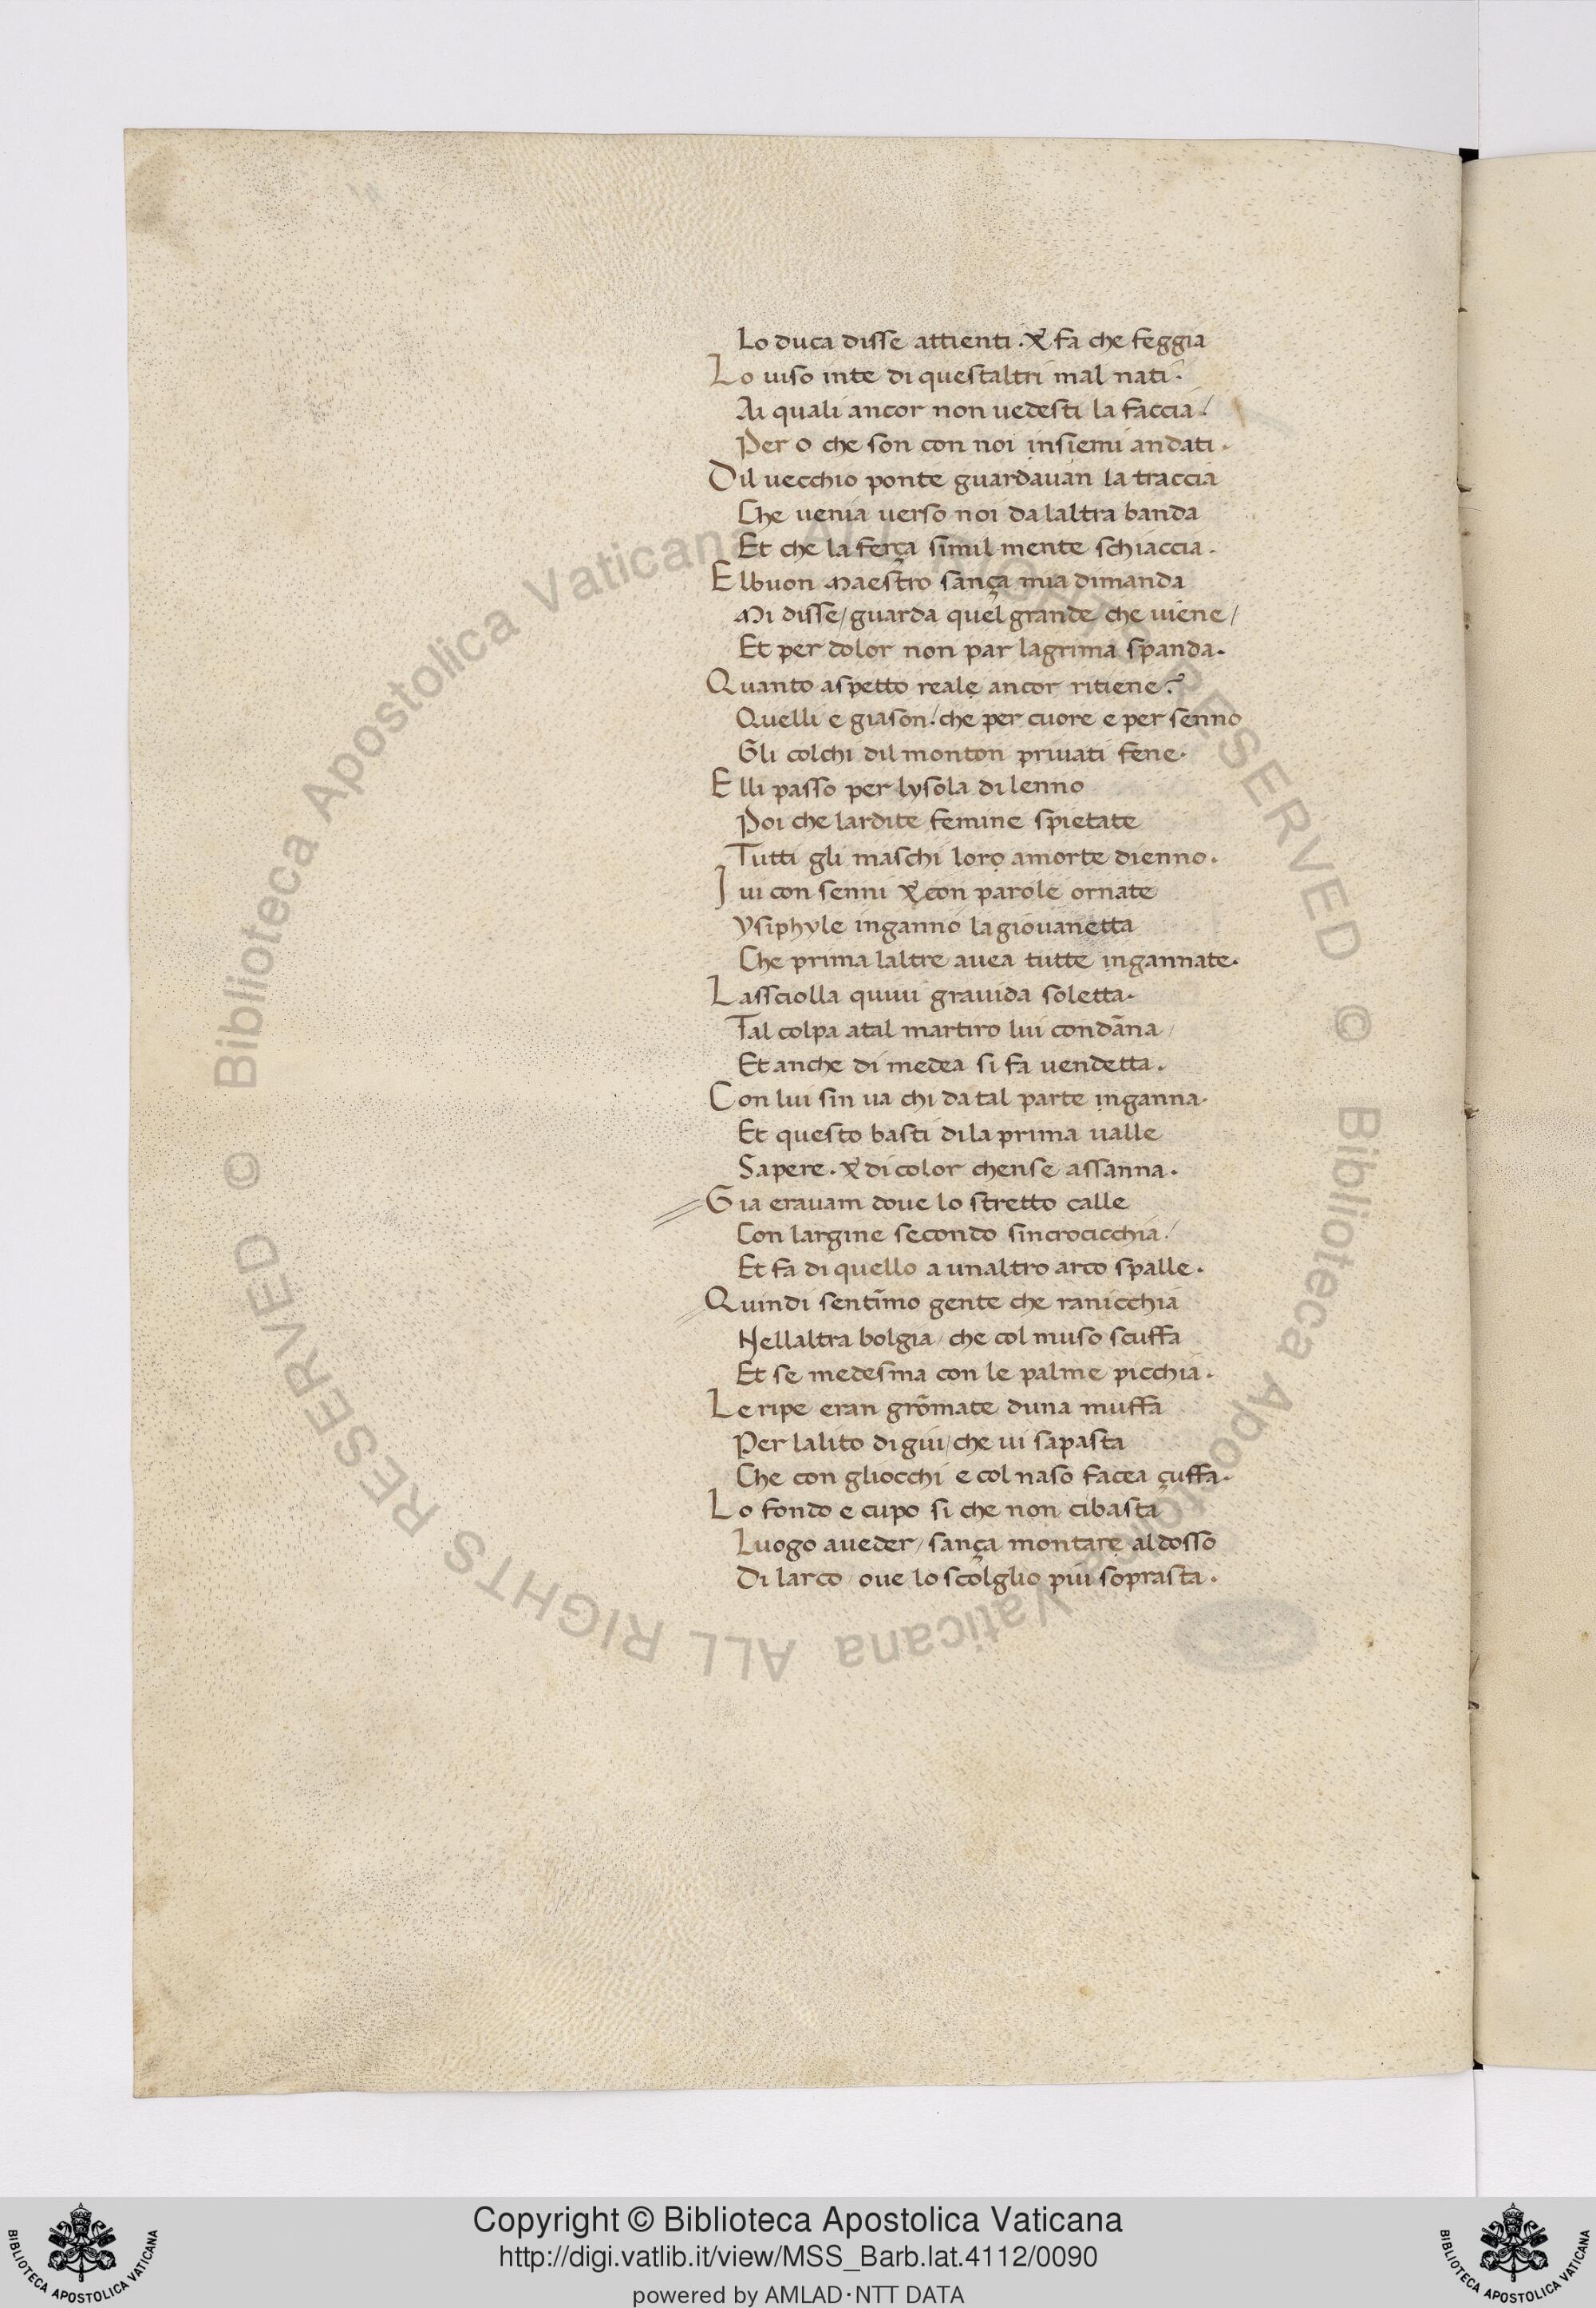 Lo duca disse attienti. & fa che feggia
Lo uiso inte di questaltri mal nati.
Ai quali ancor non uedesti la faccia/
Per o che son con noi insiemi andati.
Dil uecchio ponte guardauan la traccia
Che uenia uerso noi da laltra banda
Et che la ferça simil mente schiaccia.
Elbuon maestro sança mia dimanda
Mi disse/ guarda quel grande che uiene/
Et per dolor non par lagrima spanda.
Quanto aspetto reale ancor ritiene?
Quelli e giason. che per cuore e per senno
Gli colchi dil monton priuati fene.
Elli passo per lysola di lenno
Poi che lardite femine spietate
Tutti gli maschi loro amorte dienno.
Iui con senni & con parole ornate
Ysiphyle inganno la giouanetta
Che prima laltre auea tutte ingannate.
Lassciolla quiui grauida soletta.
Tal colpa atal martiro lui condāna/
Et anche di medea si fa uendetta.
Con lui sin ua chi da tal parte inganna.
Et questo basti dila prima ualle
Sapere. & di color chense assanna.
Gia erauam doue lo stretto calle
Con largine secondo sincrocicchia/
Et fa di quello a unaltro arco spalle.
Quindi sentīmo gente che ranicchia
Nellaltra bolgia/ che col muso scuffa
Et se medesma con le palme picchia.
Le ripe eran grōmate duna muffa
Per lalito di giu/ che ui sapasta
Che con gliocchi e col naso facea çuffa.
Lo fondo e cupo si che non cibasta
Luogo aueder/ sança montare aldosso
Di larco/ oue lo scolglio piu soprasta.
Copyright © Biblioteca Apostolica Vaticana
http://digi.vatlib.it/view/MSS_Barb.lat.4112/0090
powered by AMLAD·NTT DATA
BIBLIOTECA APOSTOLICA VATICANA
BIBLIOTECA APOSTOLICA VATICANA
© Biblioteca Apostolica Vaticana ALL RIGHTS RESERVED © Biblioteca Apostolica Vaticana ALL RIGHTS RESERVED